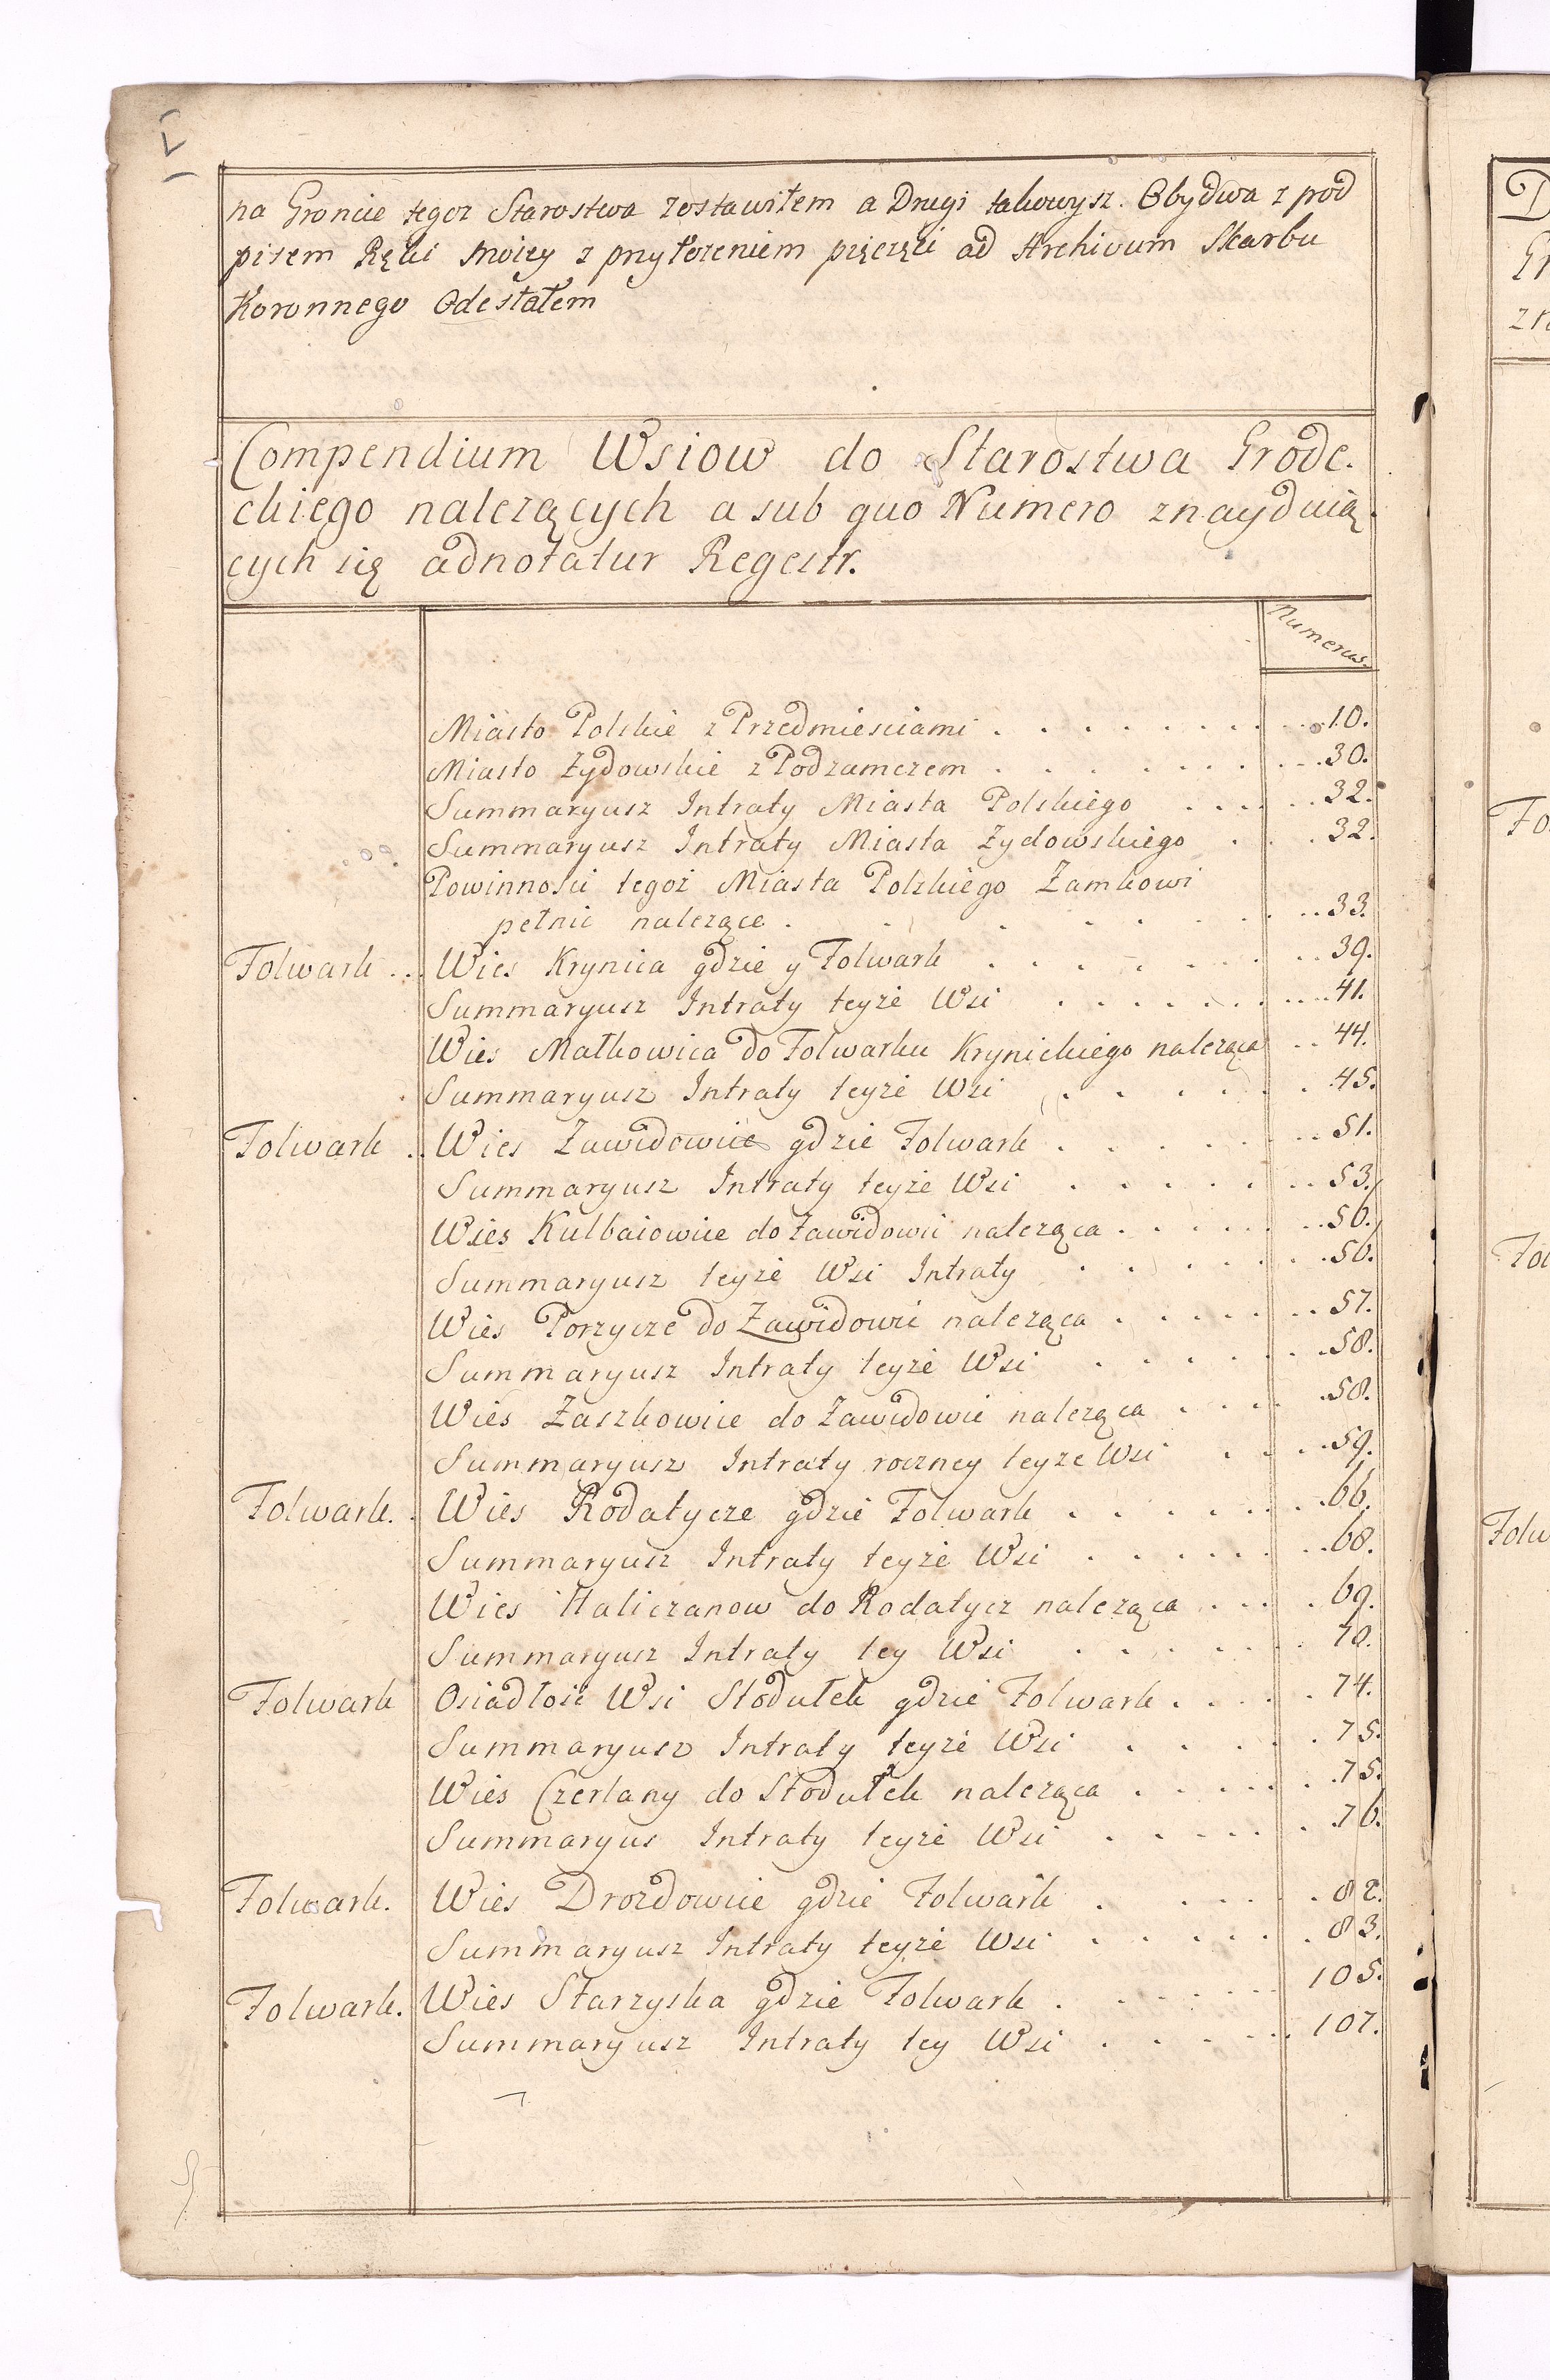 na Groncie tegoz Starostwa zostawiłem a Drugi takowysz. Obydwa z pod
pisem Ręki moiey z przyłozeniem pięcęzi ad Archivum Skarbu
Koronnego Odesłałem
Compendium Wsiow do Starostwa Grode.
ckiego nalezących a sub quo Numero znayduią
cych się adnotatur Regestr.
Numerus.
Miasto Polskie z Przedmiesciami . . . . . . . . . 10.
Miasto Zydowskie z Podzamczem . . . . . . . . . 30.
Summaryusz Intraty Miasta Polskiego . . . . . . 32.
Summaryusz Intraty Miasta Zydowskiego . . . . 32.
Powinnosci tegoż Miasta Polskiego Zamkowi
pełnic nalezące . . . . . . . . 33.
Folwark . . . Wies Krynica gdzie y Folwark . . . . . . . . 39.
Summaryusz Intraty teyże Wsi . . . . . . . . . 41.
Wies Małkowica do Folwarku Krynickiego naleząca . . 44.
Summaryusz Intraty teyże Wsi . . . . . . 45.
Folwark . . Wies Zawidowice gdzie Folwark . . . . . . . 51.
Summaryusz Intraty teyże Wsi . . . . . . . 53.
Wies Kulbaiowice do Zawidowic naleząca . . . . . . . 56.
Summaryusz teyże Wsi Intraty . . . . . . . 56.
Wies Porzycze do Zawidowic naleząca . . . . . . . 57.
Summaryusz Intraty teyże Wsi . . . . . . . 58.
Wies Zaszkowice do Zawidowic naleząca . . . . . 58.
Summaryusz Intraty roczney teyze Wsi . . . . . 59.
Folwark. . Wies Rodatycze gdzie Folwark . . . . . . . . 66.
Summaryusz Intraty teyże Wsi . . . . . . . . 68.
Wies Haliczanow do Rodatycz naleząca . . . . . 69.
Summaryusz Intraty tey Wsi . . . . . . . 70.
Folwark Osiadłość Wsi Stodułek gdzie Folwark . . . . . 74.
Summaryusz Intraty teyże Wsi . . . . . 75.
Wies Czerlany do Stodułek naleząca . . . . . . . 75.
Summaryus Intraty teyże Wsi . . . . . . . 76.
Folwark. Wies Drozdowice gdzie Folwark . . . . . . 82.
Summaryusz Intraty teyże Wsi . . . . . . . 83.
Folwark. Wies Starzyska gdzie Folwark . . . . . . . 105.
Summaryusz Intraty tey Wsi . . . . . . 107.